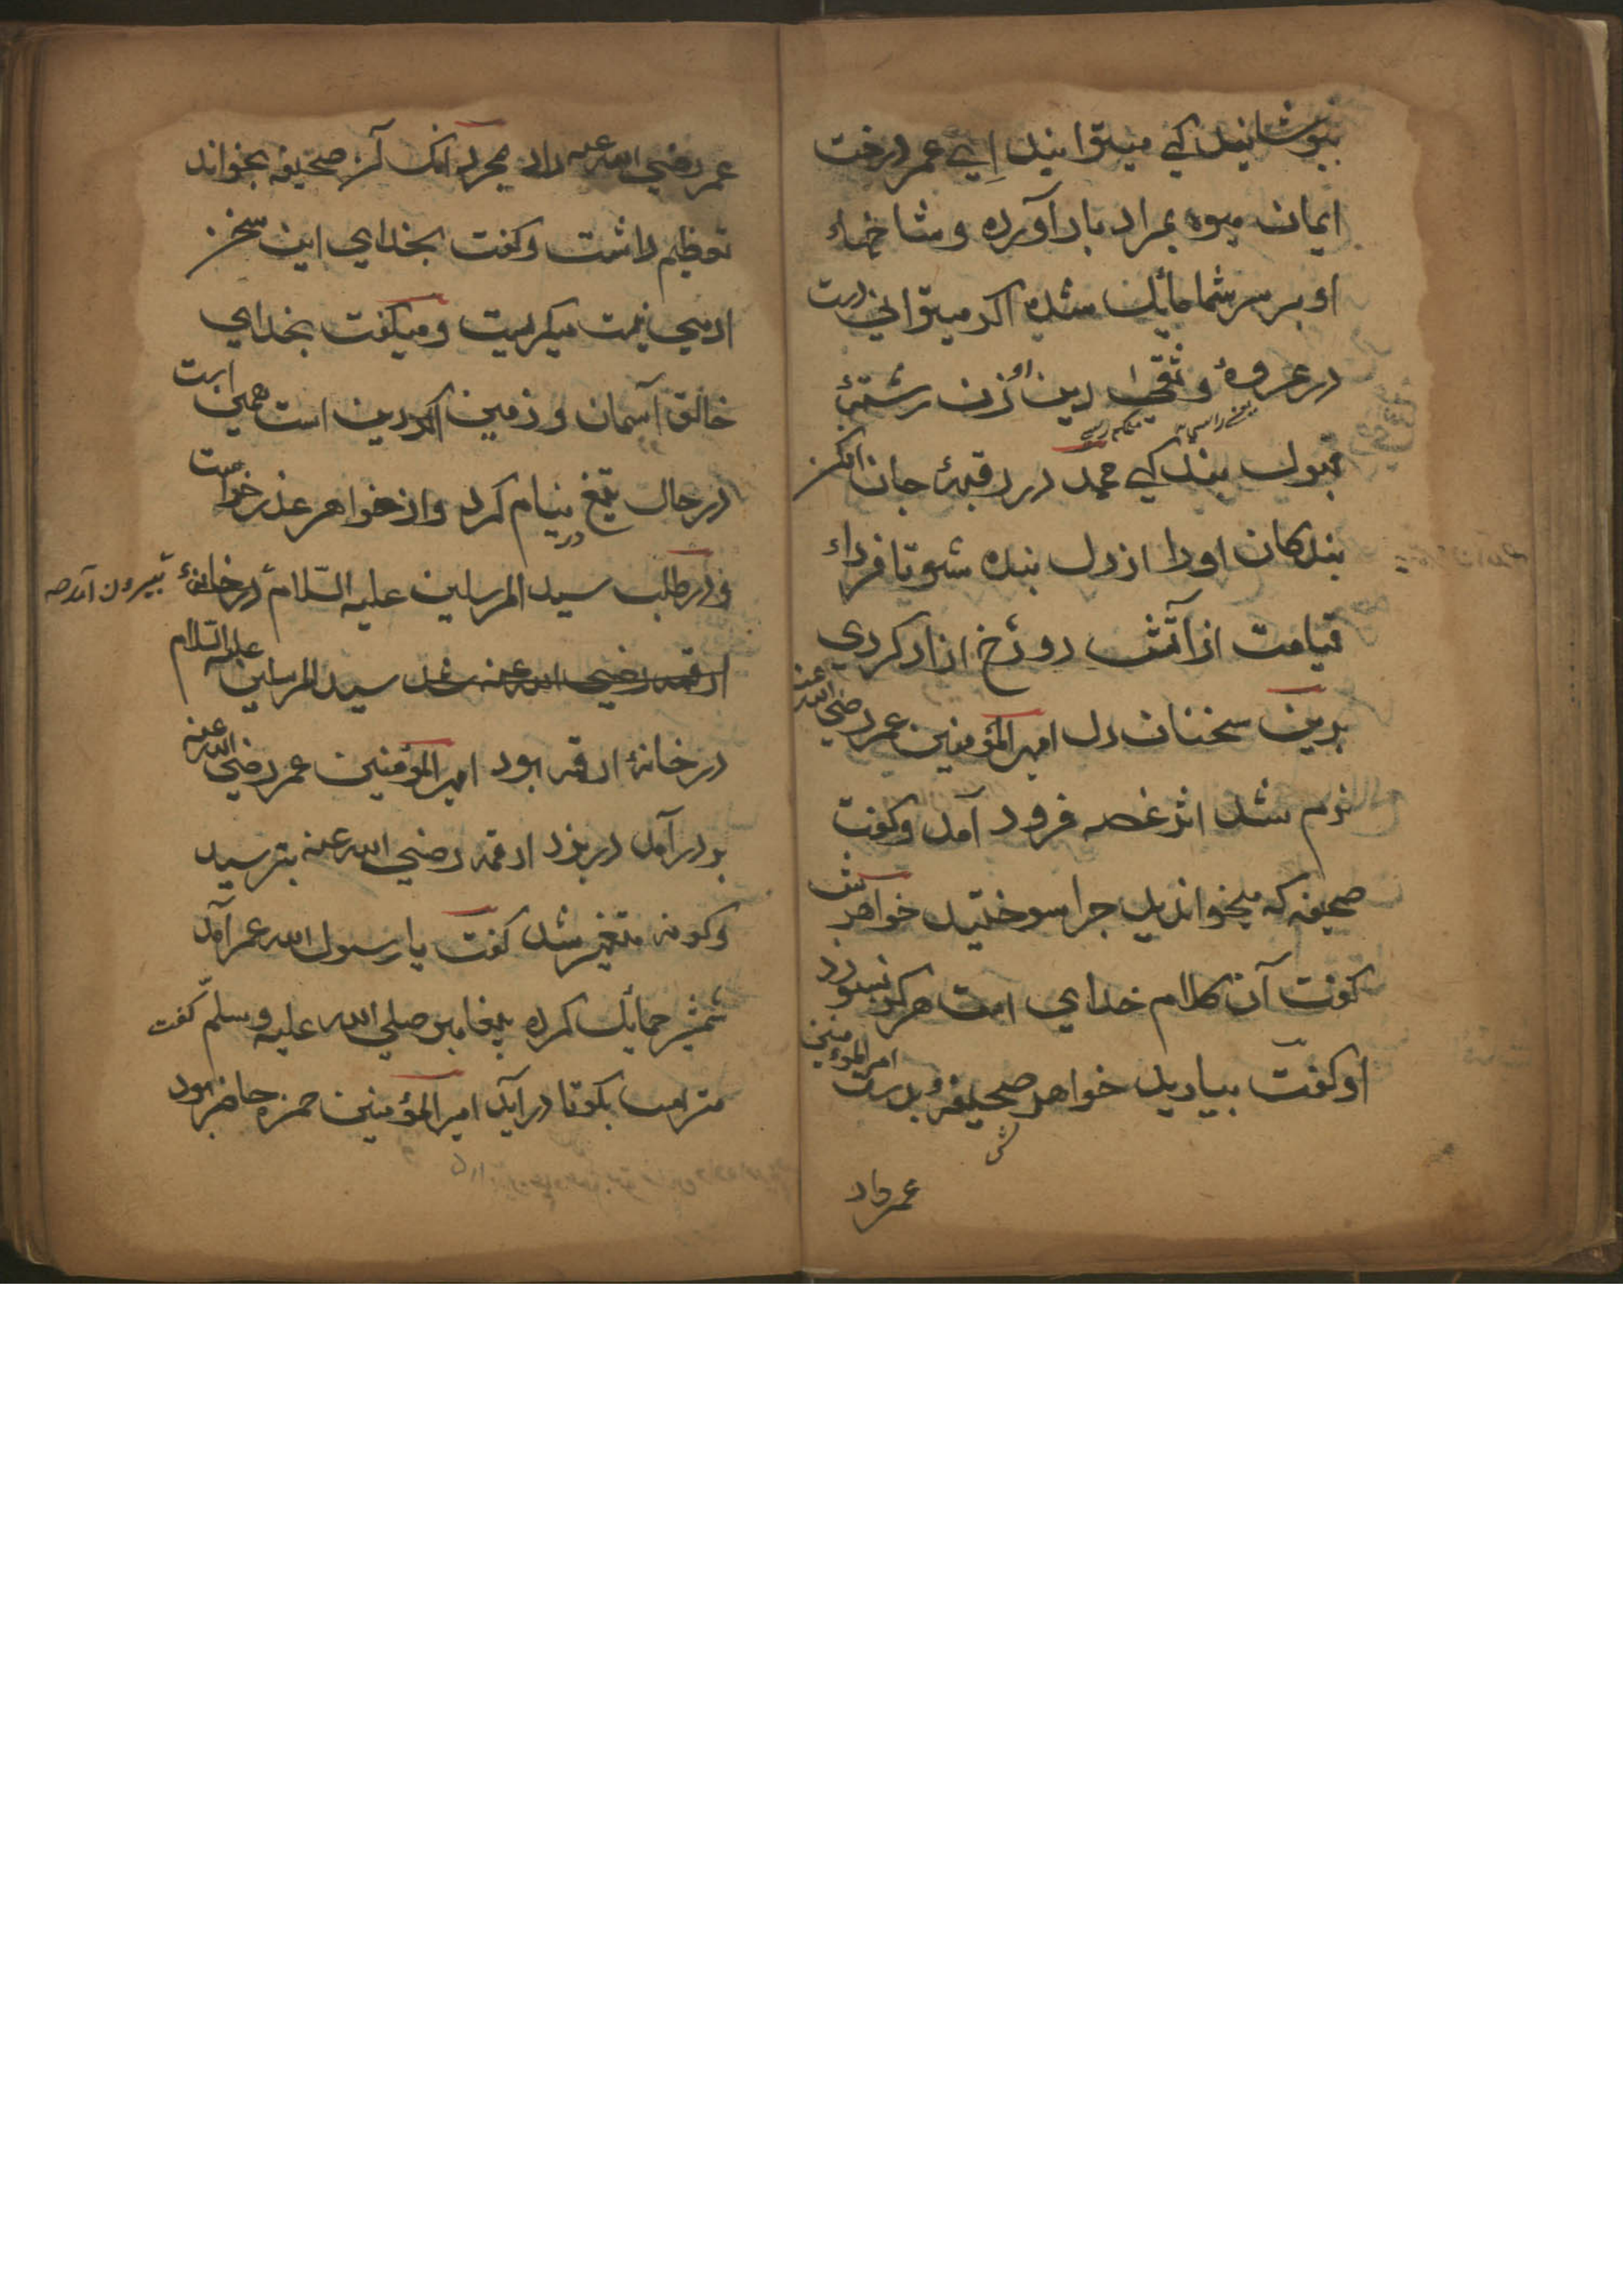 بپوشانید کی میتوانید ایی عمر درخت
ایمان میوه بمراد بار آورده و شاخهاء
او بر سر شما مائل شده اکر میتوانی دست
در عروهٔ وثقی دین او زن رشتهٔ
قبول بندکی محمد در رقبهٔ جان افکن
بندکان او را از دل بنده شو تا فرداء
قیامت از آتش دوزخ ازاد کردی
بدین سخنان دل امیر المؤمنین عمر رضی الله عنه
نرم شد از غصه فرود آمد وکفت
صحیفه که میخواندید جرا سوختید خواهرش
کفت آن کلام خدای است هرکز نسوزد
او کفت بیارید خواهرش صحیفه بدست امیر المؤمنین
عمر داد
عمر رضی الله عنه داد مجرد انک آن صحیفه بخواند
تعظیم داشت وکفت بخدای این سخن
ادمی نیست میکریست ومیکفت بخدای
خالق آسمان وزمین اکر دین است همین است
در حال تیغ در نیام کرد واز خواهر عذر خواست
ودر طلب سید المرسلین علیه السلام در خانهٔ بیرون آمد
ارقمه رضی الله عنه شد سید المرسلین علیه السلام
در خانهٔ ارقمه بود امیر المؤمنین عمر رضی الله عنه
بر در آمد در بزد ارقمه رضی الله عنه بترسید
وکونه متغیر شد کفت یا رسول الله عمر آمد
شمشیر حمائل کرده پیغامبر صلی الله علیه وسلم کفت
مترس بکو تا در آید امیر المؤمنین حمزه حاضر بود